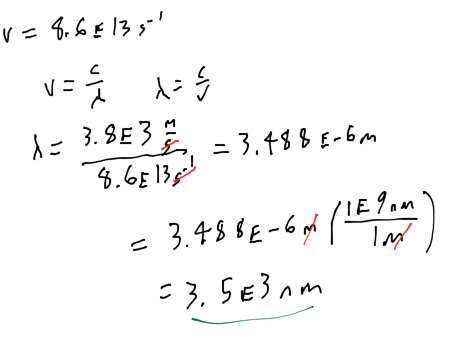 v = 8.6E13 s⁻¹
v = c/λ λ = c/v
λ = (3.8E3 m/s)/(8.6E13 s⁻¹) = 3.488E-6 m
= 3.488E-6 m (1E9 nm/1 m)
= 3.5E3 nm